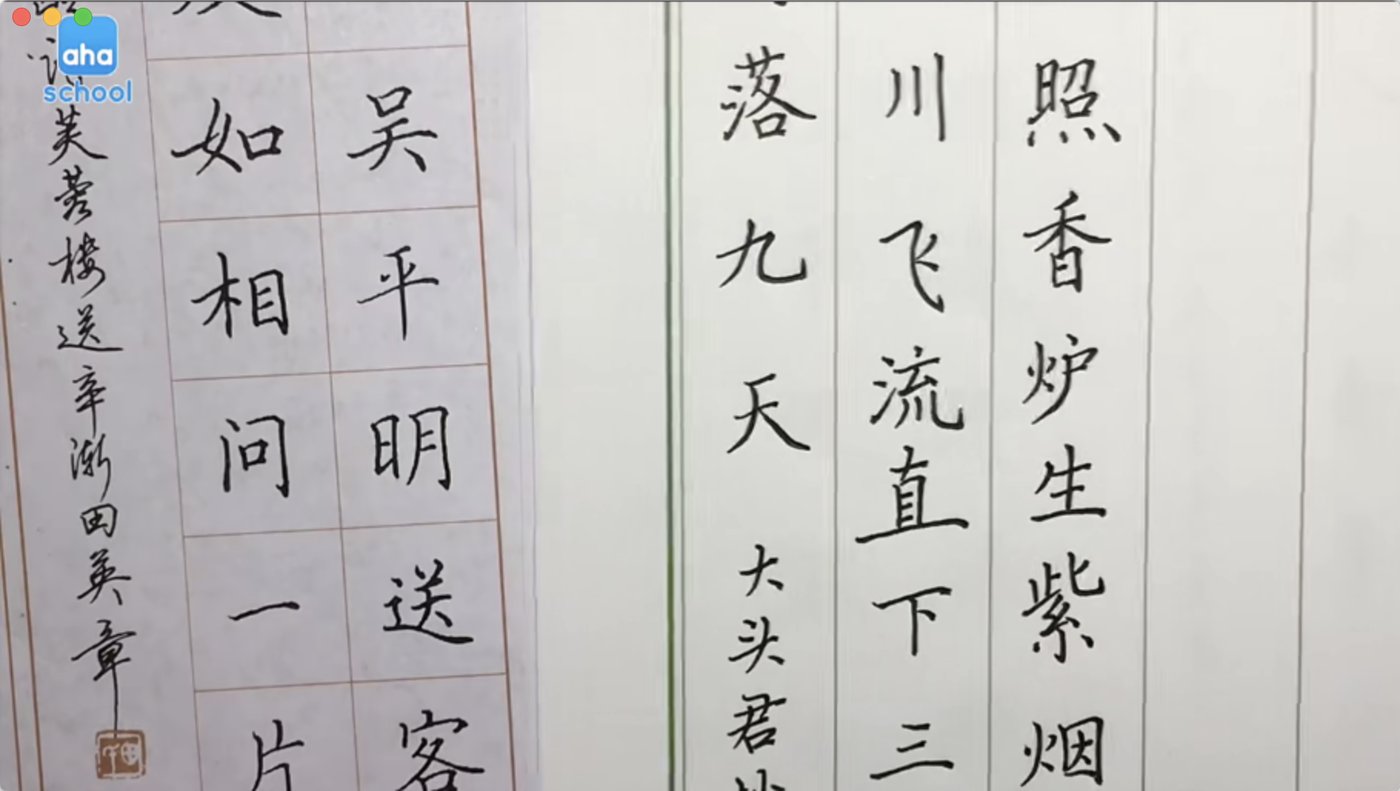 aha
school
吴平明送客
如相问一片
芙蓉楼送辛渐田英章
照香炉生紫烟
川飞流直下三
落九天 大头君